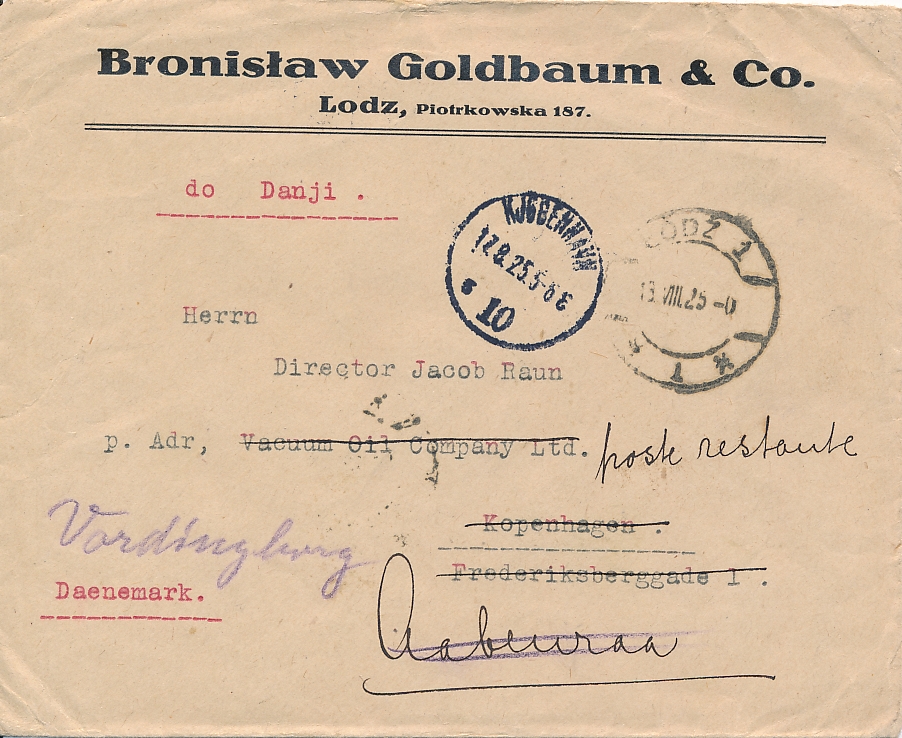 Bronisław Goldbaum & Co.
Lodz, Piotrkowska 187.
do Danji .
KJØBENHAVN
17.8.25.5-6 E
10
ŁÓDŹ 1
13.VIII.25-0
* 1 *
Herrn
Director Jacob Raun
p. Adr, Vacuum Oil Company Ltd. poste restante
Kopenhagen .
Vordingborg
Frederiksberggade 1 .
Daenemark.
Aabenraa